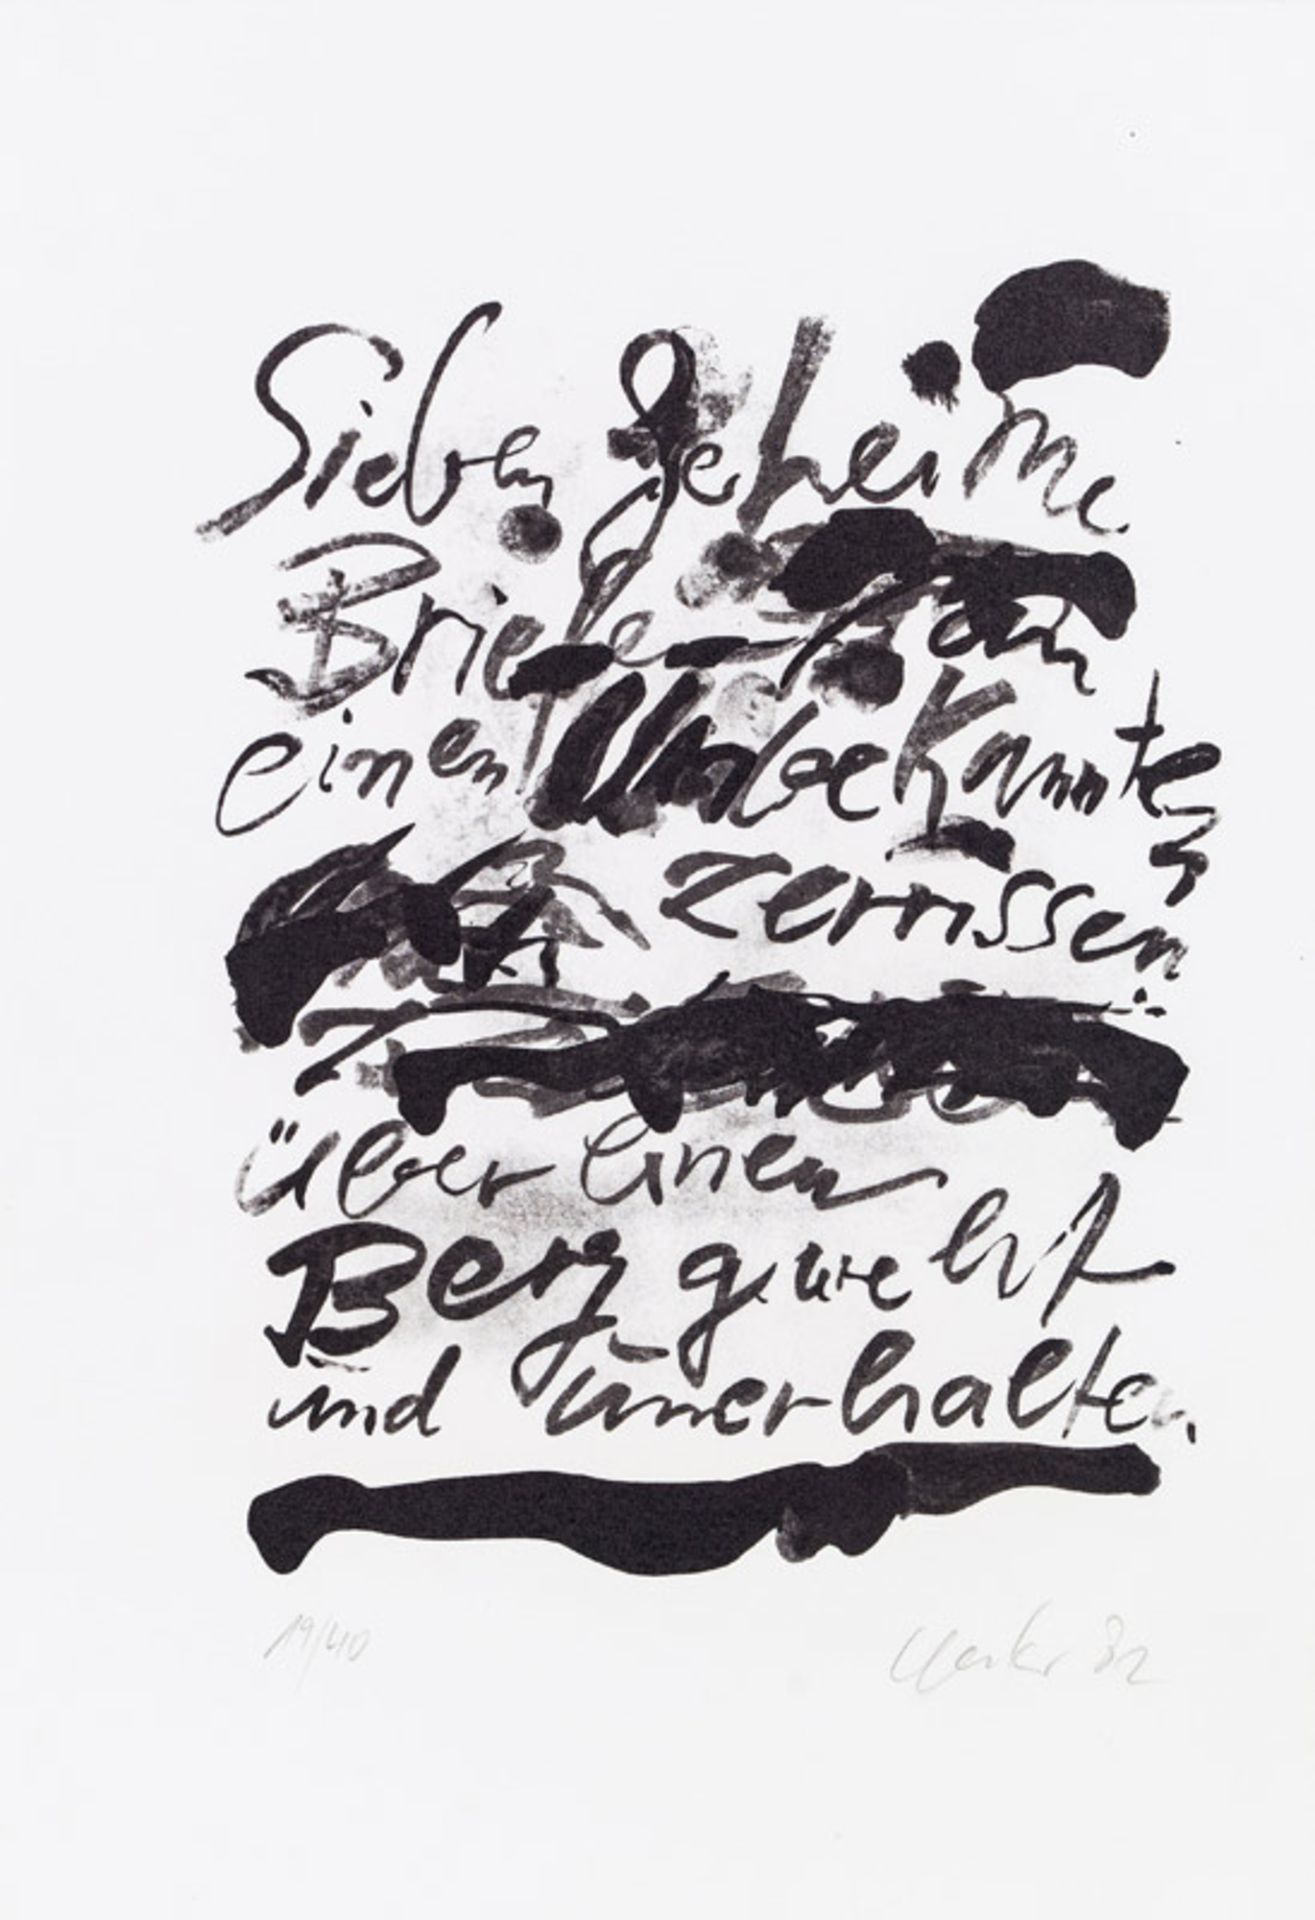 Sieben geheime
Briefe an
einen Unbekannten
zerrissen
über einen
Berg geweht
und unerhalten
19/40
Uecker 82